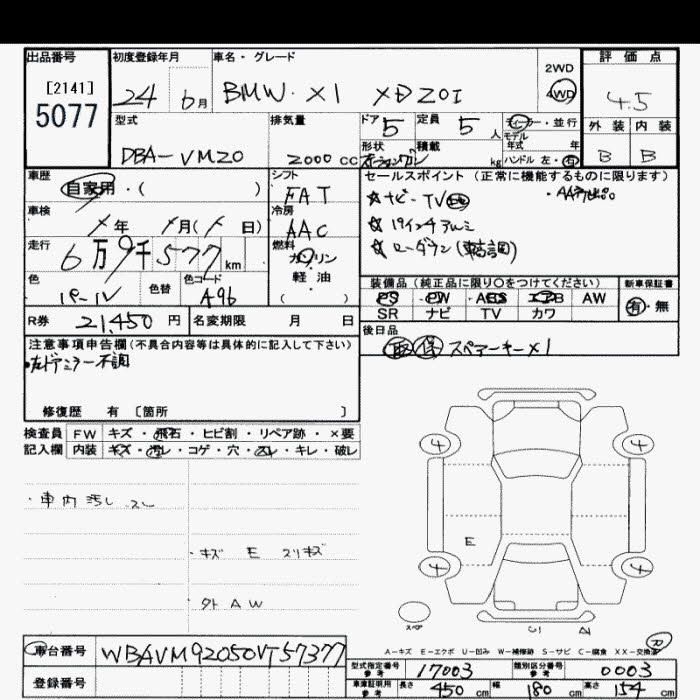 出品番号 初度登録年月 車名・グレード 評価点
[2141]
5077
24 6月 BMW X1 XD20I 2WD 4WD 4.5
型式 排気量 ドア 5 定員 5人 ディーラー・並行 外装 内装
モデル年式 年
DBA-VM20 2000 CC 形状 積載 kg ハンドル 左・右 B B
車歴 自家用・( ) シフト FAT セールスポイント(正常に機能するものに限ります)
☆ ナビ・TV
車検 年 月( 日) 冷房 AAC
☆ 19インチアルミ
走行 6万9千577km 燃料 ガソリン 軽・油 ( )
☆ ローダウン(車高調)
色 色替 色コード
パール A96
装備品(純正品に限り○をつけてください) 新車保証書
PS PW ABS エアB AW 有・無
SR ナビ TV カワ
R券 21,450円 名変期限 月 日
後日品
取 保 スペアーキー×1
注意事項申告欄(不具合内容等は具体的に記入して下さい)
・左ドアミラー不調
修復歴 有 〔箇所 〕
検査員 FW キズ・飛石・ヒビ割・リペア跡・×要
記入欄 内装 キズ・汚レ・コゲ・穴・スレ・キレ・破レ
4 4
・車内汚レ スレ
・キズ E スリキズ
E
4 4
・外 AW
スペア
A-キズ E-エクボ U-凹み W-補修跡 S-サビ C-腐食 XX-交換済
R
車台番号 WBAVM92050VT57377
型式指定番号 参考 17003 類別区分番号 参考 0003
登録番号
車庫証明用 参考 長さ 450cm 幅 180cm 高さ 154cm